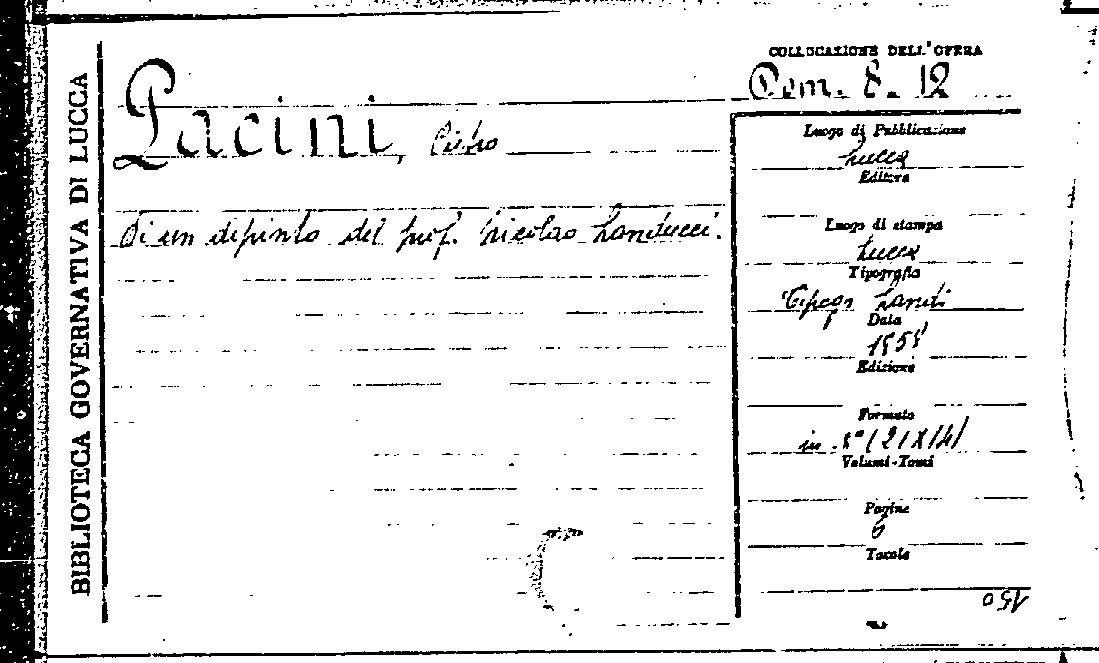 BIBLIOTECA GOVERNATIVA DI LUCCA
COLLOCAZIONE DELL'OPERA
Pem. 8. 12
Pacini, Pietro
Di un dipinto del prof. Nicolao Landucci.
Luogo di Pubblicazione
Lucca
Editore
Luogo di stampa
Lucca
Tipografia
Landi
Data
Edizione
Formato
in 8° (21X14)
Volumi-Tomi
Pagine
6
Tavole
150